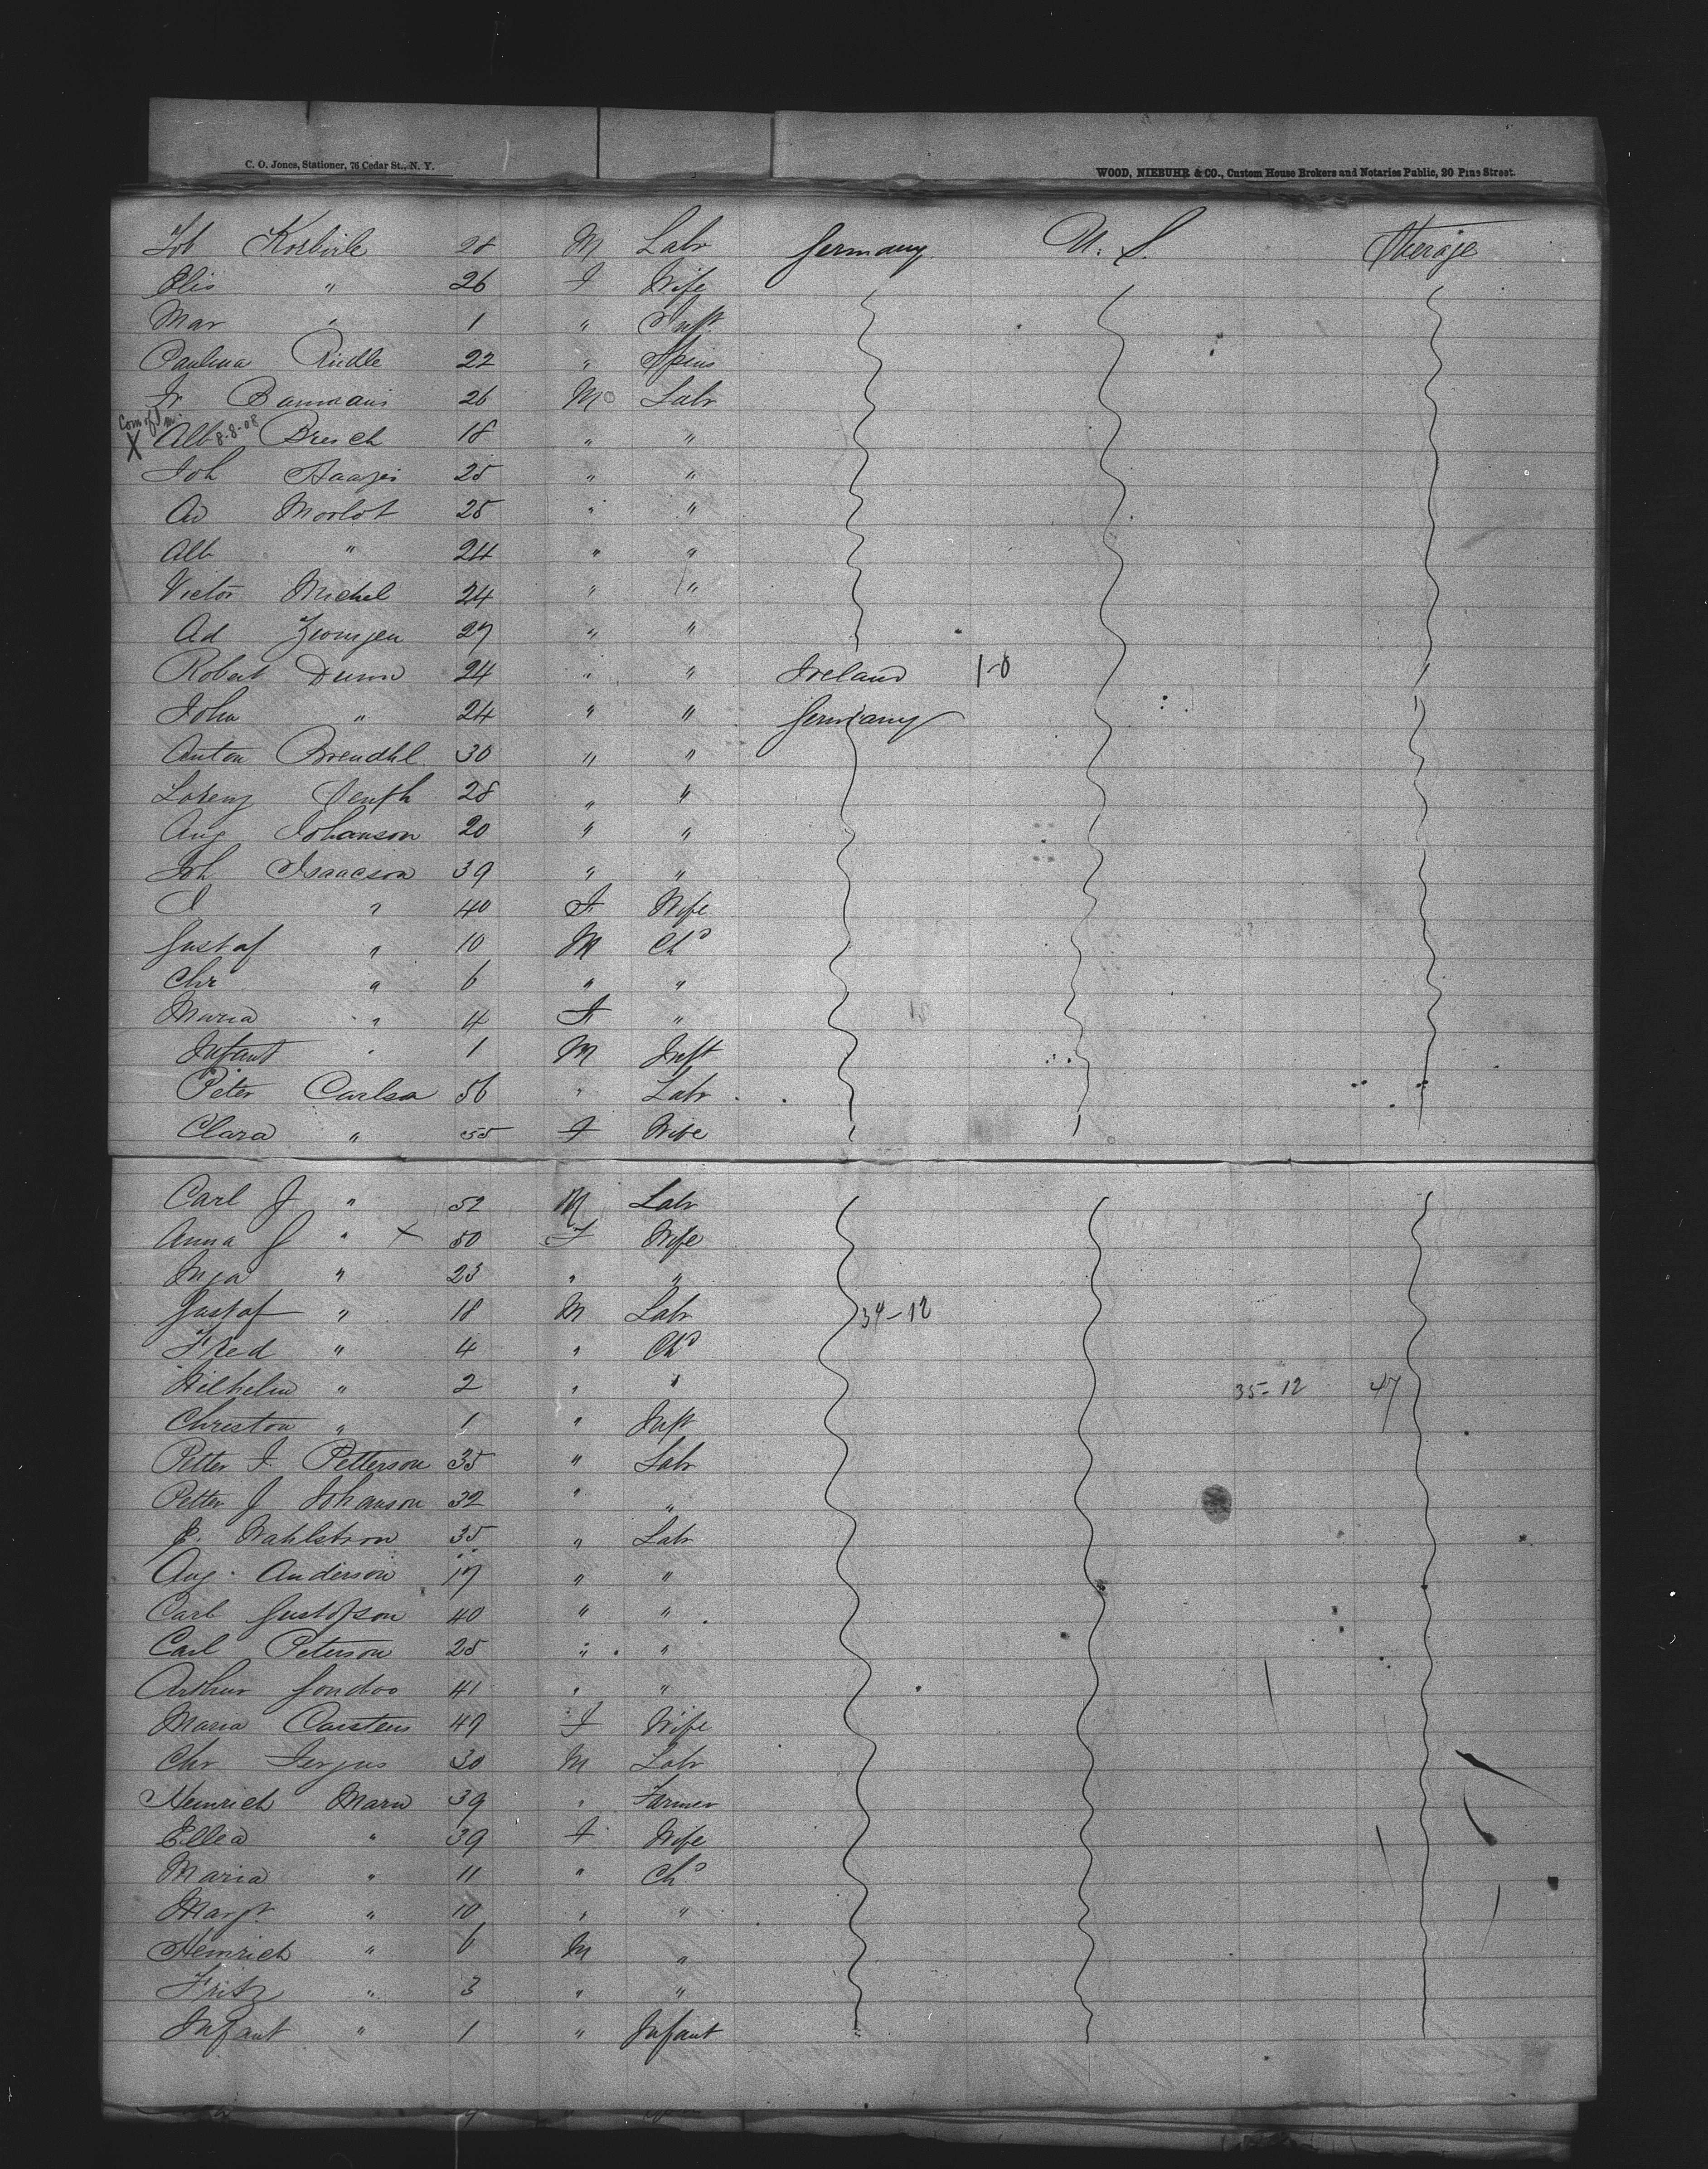 C. O. Jones, Stationer, 76 Cedar St., N. Y.
WOOD, NIEBUHR & CO., Custom House Brokers and Notaries Public, 20 Pine Street.
Joh 28 M Labr Germany U. S. Steraje
Elis " 26 F Wife
Mar " 1 " Inft
Paulina Riedle 22 " Spins
Fr 26 M Labr
Com of Im. 8-8-08
X Alb Bresch 18 " "
Joh 25 " "
Ad Morlot 25 " "
Alb " 24 " "
Victor Michel 24 " "
Ad 27 " "
Robert Dunn 24 " " Ireland 1-0
John " 24 " " Germany
Anton Brendhl 30 " "
Lorenz 28 " "
Aug Johanson 20 " "
Joh Isaacson 39 " "
I " 40 F Wife
Gustaf " 10 M Chd
Chr " 6 " "
Maria " 4 F "
Infant " 1 M Inft
Peter Carlson 56 " Labr
Clara " 55 F Wife
Carl J " 52 M Labr
Anna J " X 50 F Wife
Inga " 23 " "
Gustaf " 18 M Labr 34-12
Fred " 4 " Chd
Wilhelm " 2 " " 35-12 47
Christon " 1 " Inft
Petter J. Petterson 35 " Labr
Petter J Johanson 32 " "
E. Wahlstrom 35 " Labr
Aug. Anderson 17 " "
Carl Gustofson 40 " "
Carl Peterson 25 " "
Arthur Gondoo 41 " "
Maria Carstens 49 F Wife
Chr 30 M Labr
Heinrich Marn 39 " Farmer
Ellea " 39 F Wife
Maria " 11 " Chd
Margr " 10 " "
Heinrich " 6 M "
Fritz " 3 " "
Infant " 1 " Infant